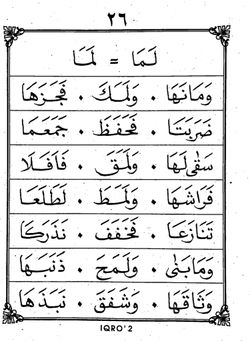 ٢٦
لَمَا = لَمَا
وَمَانَهَا . وَلَمَكَ . فَجَزَهَا
ضَرَبَتَا . فَحَفَظَ . جَمَعَمَا
سَقٰى لَهَا . وَلَمَقَ . فَأَفَلَا
فَرَاشَهَا . وَلَمَطَ . لَطَلَعَا
تَنَازَعَا . فَخَفَفَ . نَذَرَكَا
وَمَابَنٰى . وَلَمَحَ . ذَنَبَهَا
وَثَاقَهَا . وَشَفَقَ . نَبَذَهَا
IQRO' 2